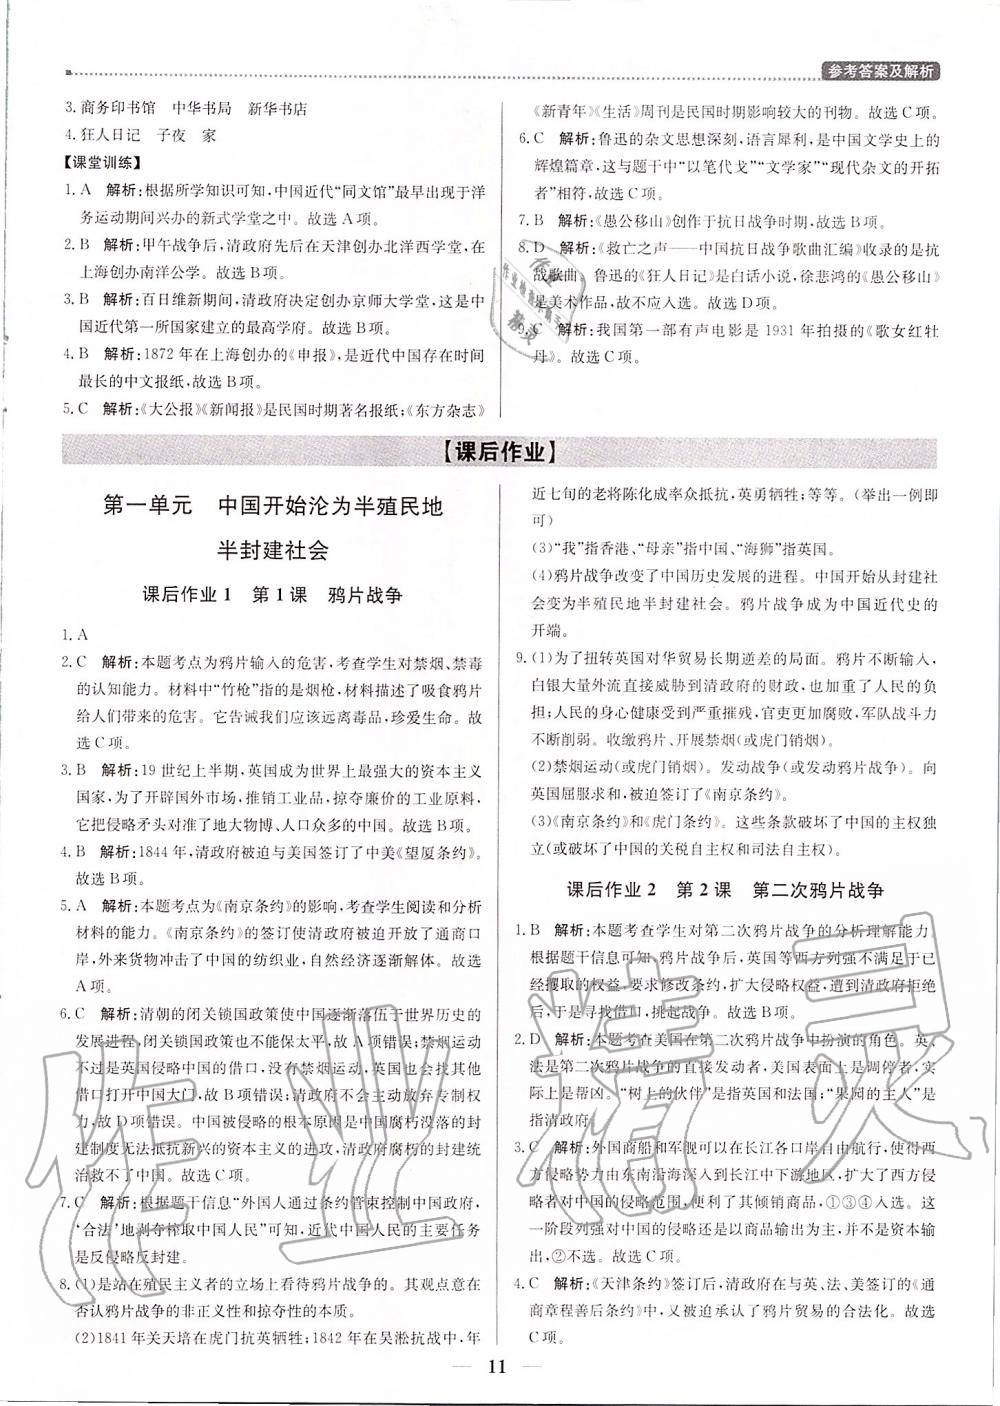 参考答案及解析
3. 商务印书馆　中华书局　新华书店
4. 狂人日记　子夜　家
【课堂训练】
1. A　解析:根据所学知识可知,中国近代“同文馆”最早出现于洋
务运动期间兴办的新式学堂之中。故选A项。
2. B　解析:甲午战争后,清政府先后在天津创办北洋西学堂,在
上海创办南洋公学。故选B项。
3. B　解析:百日维新期间,清政府决定创办京师大学堂,这是中
国近代第一所国家建立的最高学府。故选B项。
4. B　解析:1872年在上海创办的《申报》,是近代中国存在时间
最长的中文报纸,故选B项。
5. C　解析:《大公报》《新闻报》是民国时期著名报纸;《东方杂志》
《新青年》《生活》周刊是民国时期影响较大的刊物。故选C项。
6. C　解析:鲁迅的杂文思想深刻,语言犀利,是中国文学史上的
辉煌篇章,这与题干中“以笔代戈”“文学家”“现代杂文的开拓
者”相符,故选C项。
7. B　解析:《愚公移山》创作于抗日战争时期,故选B项。
8. D　解析:《救亡之声——中国抗日战争歌曲汇编》收录的是抗
战歌曲。鲁迅的《狂人日记》是白话小说,徐悲鸿的《愚公移山》
是美术作品,故不应入选。故选D项。
9. C　解析:我国第一部有声电影是1931年拍摄的《歌女红牡
丹》。故选C项。
【课后作业】
第一单元　中国开始沦为半殖民地
半封建社会
课后作业1　第1课　鸦片战争
1. A
2. C　解析:本题考点为鸦片输入的危害,考查学生对禁烟、禁毒
的认知能力。材料中“竹枪”指的是烟枪,材料描述了吸食鸦片
给人们带来的危害。它告诫我们应该远离毒品,珍爱生命。故
选C项。
3. B　解析:19世纪上半期,英国成为世界上最强大的资本主义
国家,为了开辟国外市场,推销工业品,掠夺廉价的工业原料,
它把侵略矛头对准了地大物博、人口众多的中国。故选B项。
4. B　解析:1844年,清政府被迫与美国签订了中美《望厦条约》。
故选B项。
5. A　解析:本题考点为《南京条约》的影响,考查学生阅读和分析
材料的能力。《南京条约》的签订使清政府被迫开放了通商口
岸,外来货物冲击了中国的纺织业,自然经济逐渐解体。故选
A项。
6. C　解析:清朝的闭关锁国政策使中国逐渐落伍于世界历史的
发展进程,闭关锁国政策也不能保太平,故A项错误;禁烟运动
不过是英国侵略中国的借口,没有禁烟运动,英国也会找其他
借口打开中国大门,故B项错误;清政府不会主动放弃专制权
力,故D项错误。中国被侵略的根本原因是中国腐朽没落的封
建制度无法抵抗新兴的资本主义的进攻,清政府腐朽的封建统
治救不了中国。故选C项。
7. C　解析:根据题干信息“外国人通过条约管束控制中国政府,
‘合法’地剥夺榨取中国人民”可知,近代中国人民的主要任务
是反侵略反封建。
8. (1)是站在殖民主义者的立场上看待鸦片战争的。其观点意在
否认鸦片战争的非正义性和掠夺性的本质。
(2)1841年关天培在虎门抗英牺牲;1842年在吴淞抗战中,年
近七旬的老将陈化成率众抵抗,英勇牺牲;等等。(举出一例即
可)
(3)“我”指香港、“母亲”指中国、“海狮”指英国。
(4)鸦片战争改变了中国历史发展的进程。中国开始从封建社
会变为半殖民地半封建社会。鸦片战争成为中国近代史的
开端。
9. (1)为了扭转英国对华贸易长期逆差的局面。鸦片不断输入,
白银大量外流直接威胁到清政府的财政,也加重了人民的负
担;人民的身心健康受到严重摧残,官吏更加腐败,军队战斗力
不断削弱。收缴鸦片、开展禁烟(或虎门销烟)。
(2)禁烟运动(或虎门销烟)。发动战争(或发动鸦片战争)。向
英国屈服求和,被迫签订了《南京条约》。
(3)《南京条约》和《虎门条约》。这些条款破坏了中国的主权独
立(或破坏了中国的关税自主权和司法自主权)。
课后作业2　第2课　第二次鸦片战争
1. B　解析:本题考查学生对第二次鸦片战争的分析理解能力。
根据题干信息可知,鸦片战争后,英国等西方列强不满足于已
经攫取的权益,要求修改条约,扩大侵略权益,遭到清政府拒绝
后,于是寻找借口,挑起战争。故选B项。
2. D　解析:本题考查美国在第二次鸦片战争中扮演的角色。英、
法是第二次鸦片战争的直接发动者,美国表面上是调停者,实
际上是帮凶。“树上的伙伴”是指英国和法国;“果园的主人”是
指清政府。
3. C　解析:外国商船和军舰可以在长江各口岸自由航行,使得西
方侵略势力由东南沿海深入到长江中下游地区,扩大了西方侵
略者对中国的侵略范围,便利了其倾销商品,①③④入选。这
一阶段列强对中国的侵略还是以商品输出为主,并不是资本输
出,②不选。故选C项。
4. C　解析:《天津条约》签订后,清政府在与英、法、美签订的《通
商章程善后条约》中,又被迫承认了鸦片贸易的合法化。故选
C项。
11
作业精灵